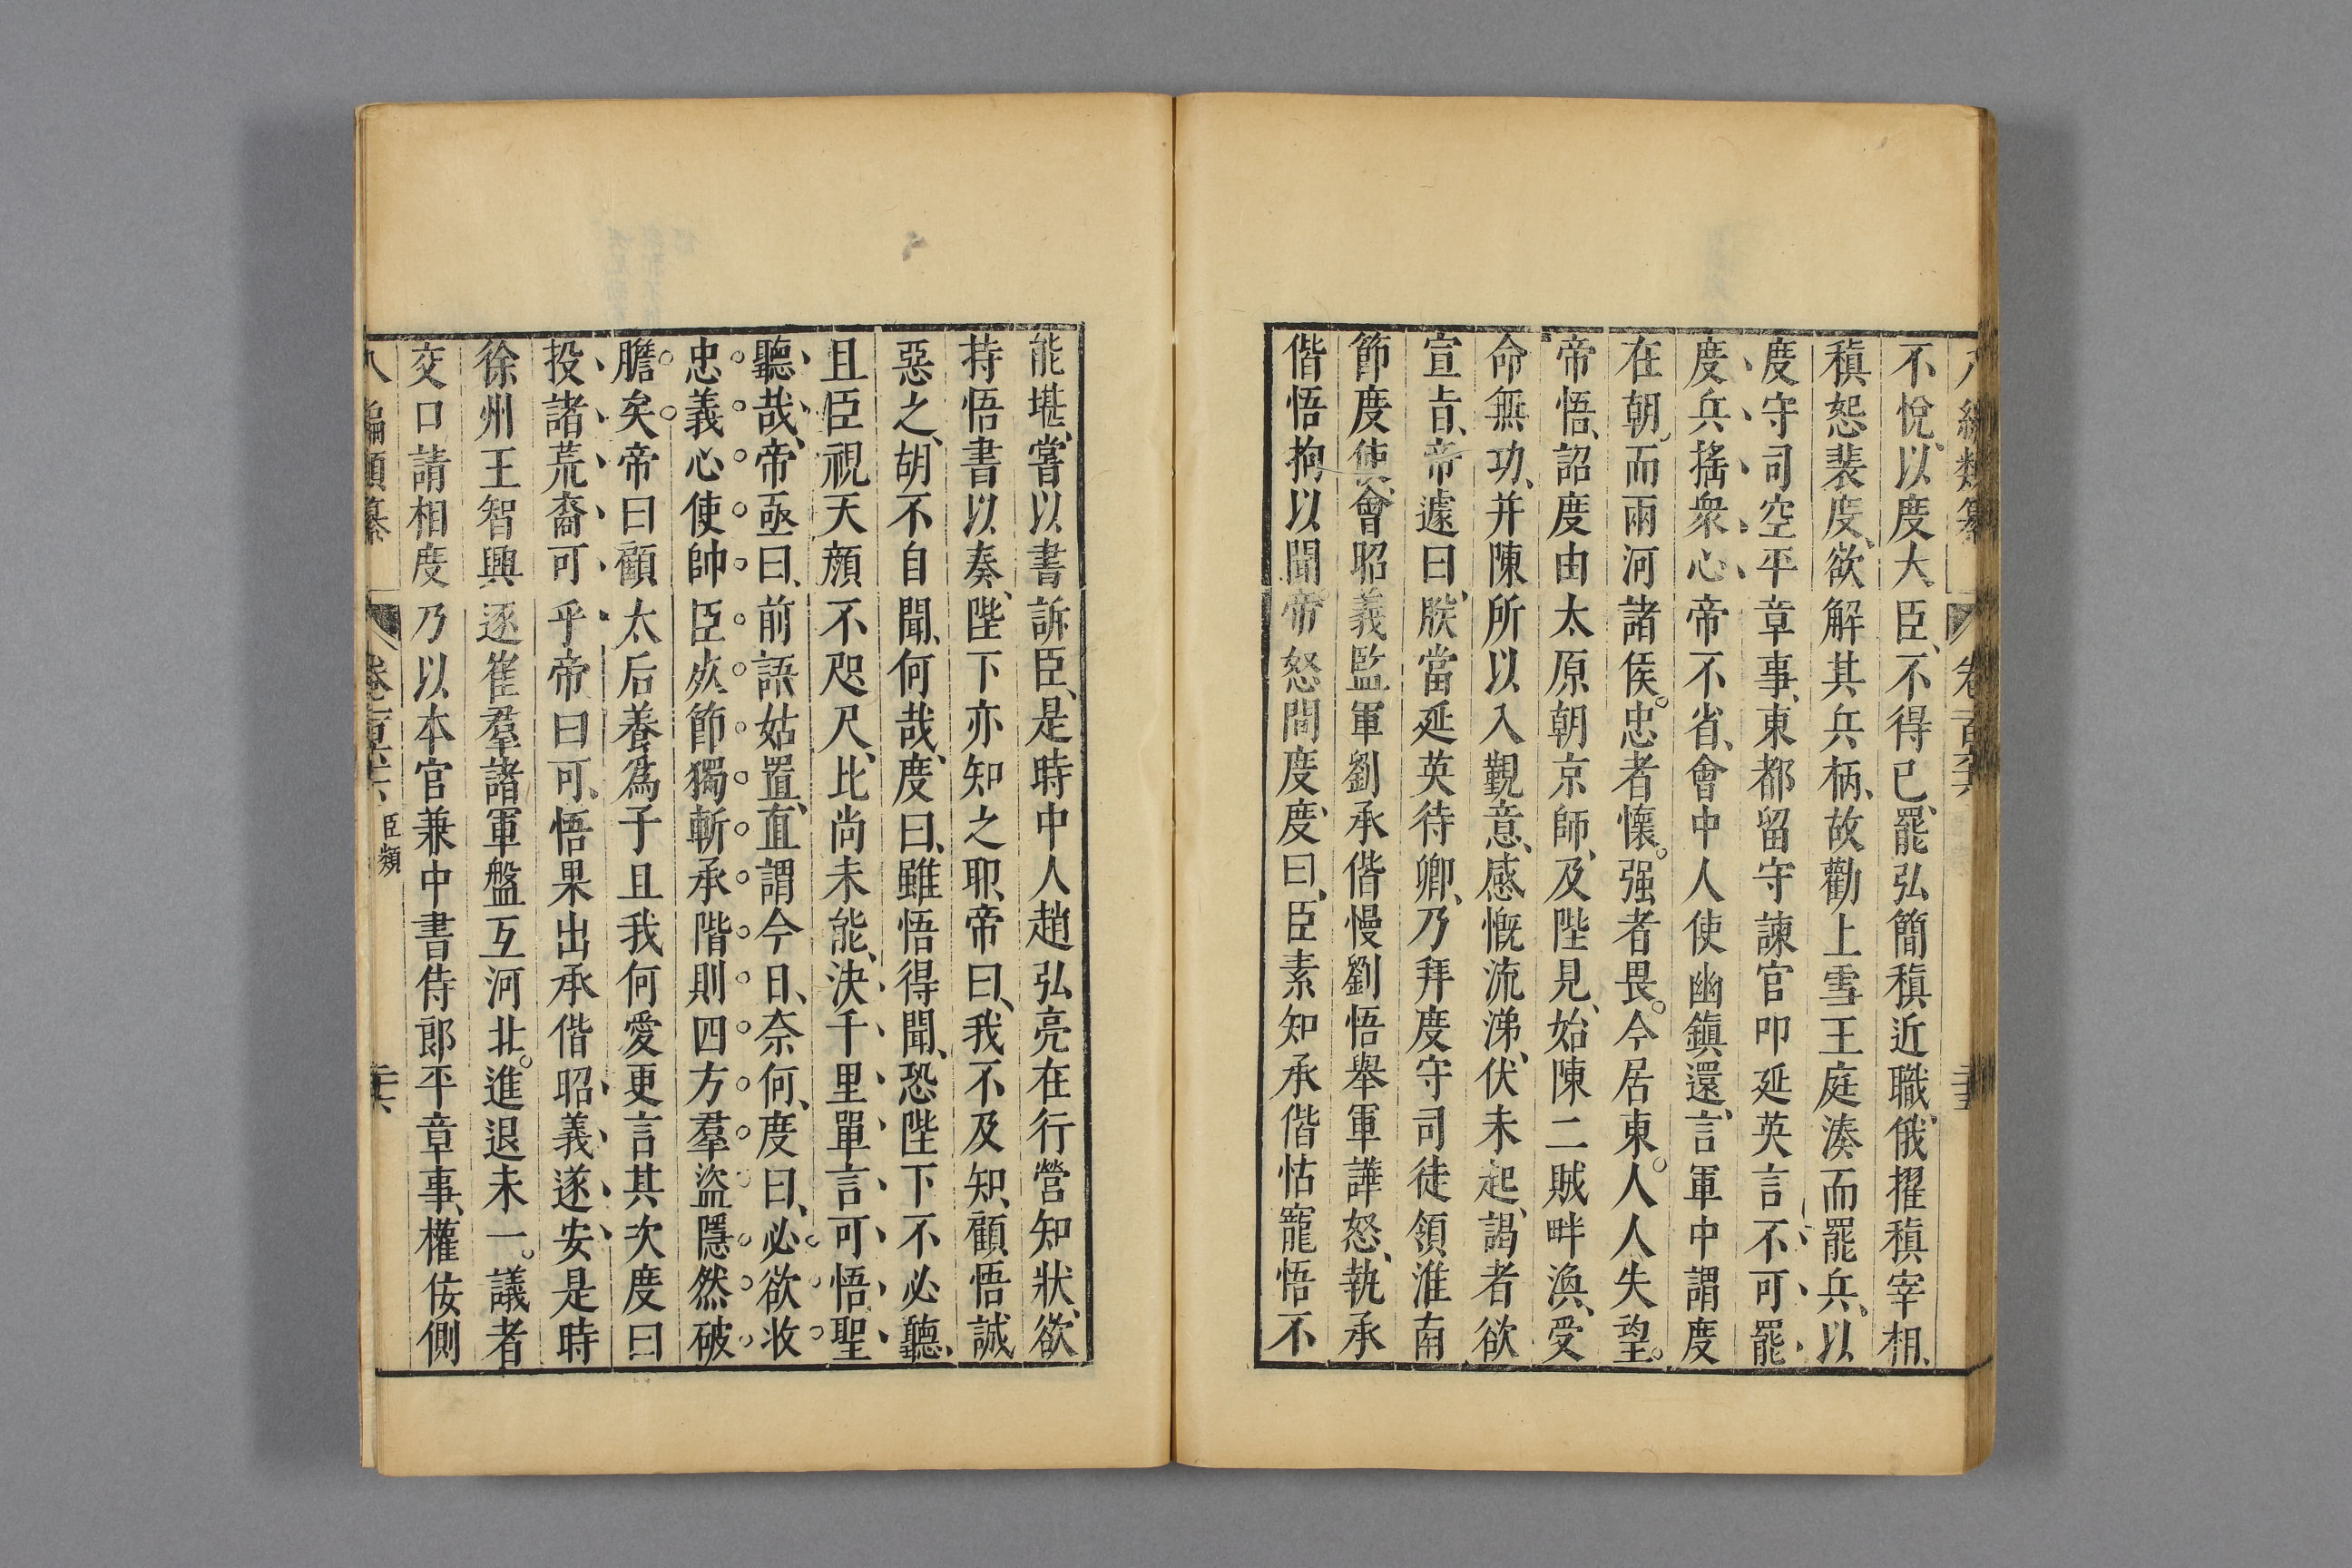 八編類纂 卷一百六 三十五
不悅、以度大臣、不得已、罷弘簡稹近職、俄擢稹宰相、
稹怨裴度、欲解其兵柄、故勸上雪王庭湊而罷兵。以
度守司空平章事、東都留守諫官叩延英言不可罷
度兵搖衆心帝不省、會中人使幽鎮還、言軍中謂度
在朝、而兩河諸侯。忠者懷。强者畏。今居東。人人失望。
帝悟、詔度由太原朝京師、及陛見、始陳二賊畔渙、受
命無功、并陳所以入覲意、感慨流涕、伏未起、謁者欲
宣旨、帝遽曰、朕當延英待卿、乃拜度守司徒領淮南
節度使、會昭義監軍劉承偕慢劉悟舉軍譁怒、執承
偕悟拘以聞帝怒問度、度曰、臣素知承偕怙寵悟不
能堪、嘗以書訴臣、是時中人趙弘亮在行營知狀、欲
持悟書以奏、陛下亦知之耶、帝曰、我不及知、顧悟誠
惡之、胡不自聞、何哉、度曰、雖悟得聞、恐陛下不必聽、
且臣視天顏不咫尺、比尚未能、決千里單言可悟聖
聽哉、帝亟曰、前語姑置、直謂今日、奈何、度曰、必欲收
忠義心使帥臣死節獨斬承階則四方羣盜隱然破
膽矣帝曰顧太后養爲子且我何愛更言其次度曰
投諸荒裔可乎帝曰可、悟果出承偕昭義遂安是時
徐州王智興逐崔羣諸軍盤互河北。進退未一。議者
交口請相度乃以本官兼中書侍郎平章事、權佞側
八編類纂 卷一百六 臣類 三十六